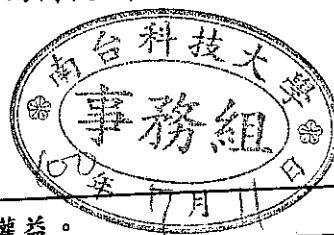 南台科技大學
事務組
100年 7月 11日
權益。